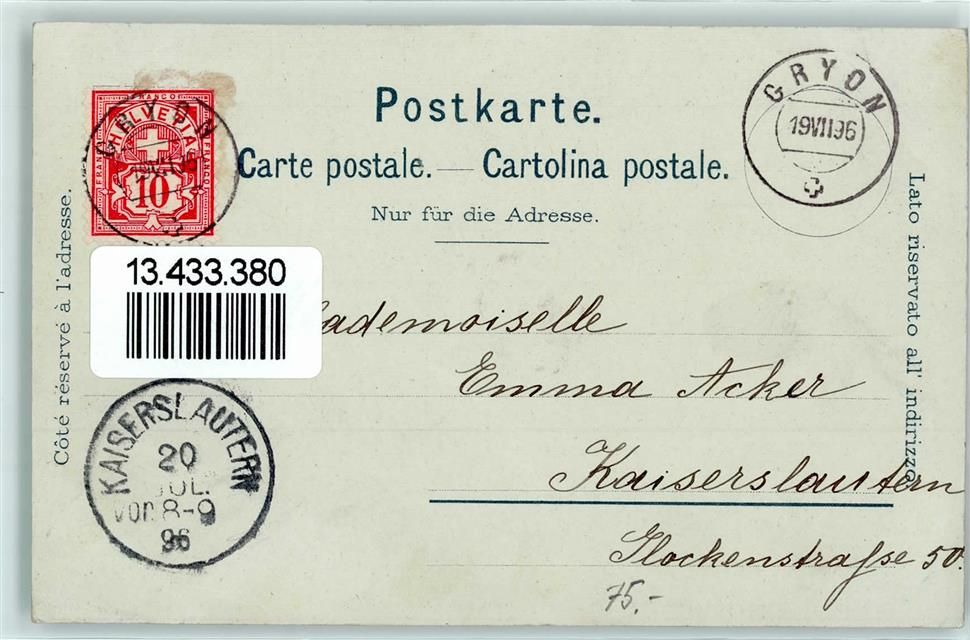 Postkarte.
Carte postale. — Cartolina postale.
Nur für die Adresse.
Côté réservé à l'adresse.
Lato riservato all' indirizzo.
FRANCO
HELVETIA
FRANCO
FRANCO
10
GRYON
GRYON
19VII96
13.433.380
ademoiselle
Emma Acker
Kaiserslautern
Glockenstraſse 50.
KAISERSLAUTERN
20
JUL.
vor. 8-9
96
75.-